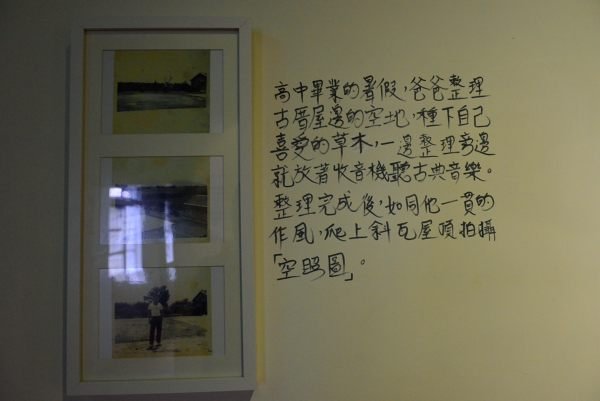 高中畢業的暑假，爸爸整理
古厝屋邊的空地，種下自己
喜愛的草木，一邊整理旁邊
就放著收音機聽古典音樂。
整理完成後，如同他一貫的
作風，爬上斜瓦屋頂拍攝
「空照圖」。